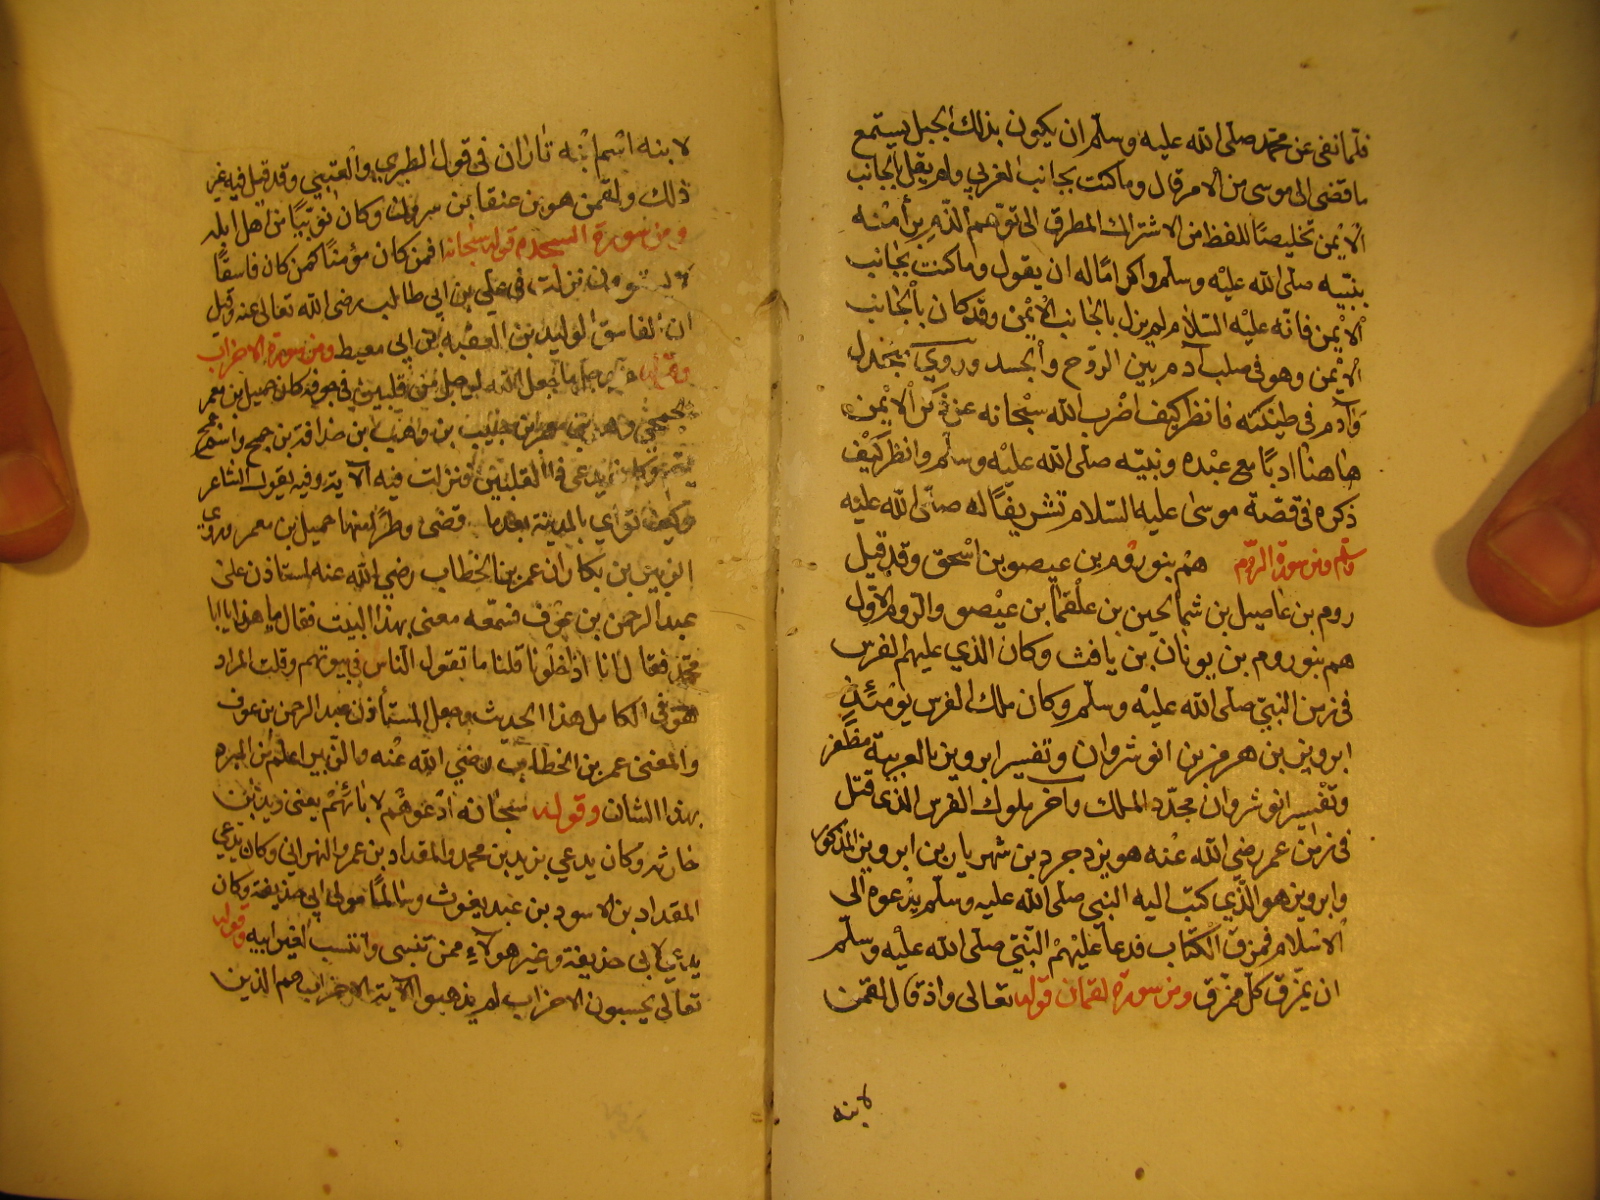 فلما نفى عن محمد صلى الله عليه وسلم ان يكون بذلك الجبل يستمع
ما قضى الى موسى من الامر قال وما كنت بجانب الغربي ولم يقل بالجانب
الايمن تخليصًا للفظ من الاشتراك المطرق الى توهم الذم برأ منه
نبيه صلى الله عليه وسلم واكرامًا له ان يقول وما كنت بجانب
الايمن فانه عليه السلام لم يزل بالجانب الايمن وقد كان بالجانب
الايمن وهو في صلب آدم بين الروح والجسد وروي منجدل
وآدم في طينته فانظر كيف اضرب الله سبحانه عن ذكر الايمن
هاهنا ادبًا مع عبده ونبيه صلى الله عليه وسلم وانظر كيف
ذكره في قصة موسى عليه السلام تشريفًا له صلى الله عليه
وسلم ومن سورة الروم هم بنو روم بن عيصو بن اسحق وقد قيل
روم بن عاصيل بن شمالحين بن علقما بن عيصو والروم الاول
هم بنو روم بن يونان بن يافث وكان الذي عليهم الفرس
في زمن النبي صلى الله عليه وسلم وكان ملك الفرس يومئذ
ابرويز بن هرمز بن انوشروان وتفسير ابرويز بالعربية مظفر
وتفسير انوشروان مجدد الملك وآخر ملوك الفرس الذي قتل
في زمن عمر رضي الله عنه هو يزدجرد بن شهريار بن ابرويز المذكور
وابرويز هو الذي كتب اليه النبي صلى الله عليه وسلم يدعوه الى
الاسلام فمزق الكتاب فدعا عليهم النبي صلى الله عليه وسلم
ان يمزق كل ممزق ومن سورة لقمان قوله تعالى واذ قال لقمن
لابنه
لابنه اسم ابنه تاران في قول الطبري والعتبي وقد قيل فيه غير
ذلك ولقمن هو بن عنقا بن سرون وكان نوبيًا من اهل ايله
ومن سورة السجدة قوله سبحانه افمن كان مؤمنًا كمن كان فاسقًا
لا يستوون نزلت في علي بن ابي طالب رضى الله تعالى عنه وقيل
ان الفاسق الوليد بن العقبه بن ابي معيط ومن سورة الاحزاب
وقوله ما جعل الله لرجل من قلبين في جوفه كان جميل بن معمر
الجمحي وهو بن حبيب بن واهب بن حذافة بن جمح واسم جمح
تيم وكان يدعى ذا القلبين فنزلت فيه الآية وفيه يقول الشاعر
وكيف ثوائي بالمدينة بعدما قضى وطرًا منها جميل بن معمر وروى
الزبير بن بكار ان عمر بن الخطاب رضي الله عنه استاذن على
عبد الرحمن بن عوف فسمعه معنى بهذا البيت فقال ما هذا يا ابا
محمد فقال انا اذا خلونا قلنا ما تقول الناس في بيوتهم وقلت المراد
هو في الكامل هذا الحدث وجعل المستأذن عبد الرحمن بن عوف
والمعنى عمر بن الخطاب رضي الله عنه والزبير اعلم من المبره
بهذا الشان وقوله سبحانه ادعوهم لابائهم يعنى زيد بن
حارثه وكان يدعي بزيد بن محمد والمقداد بن عمرو النهراني وكان يدعي
المقداد بن الاسود بن عبد يغوث وسالمًا مولى ابي حذيفة وكان
يدعي لابي حذيفة وغير هولاء ممن تبنى وانتسب لغير ابيه وقوله
تعالى يحسبون الاحزاب لم يذهبوا الآية الاحزاب هم الذين